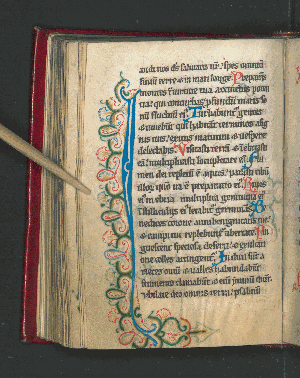 audi nos ds salutaris nr: spes omnium
finiu terre et in mari longe. Preparans
montes i uirtute tua accinctus poten
tia: qui conturbas pfundu maris so
nu fluctuu ei. Turbabunt gentes
et timebunt qui habitat terminos a sig
nis tuis: exitus matutini et uespere
delectabis. Uisitasti terra et inebriasti
ea: multiplicasti locupletare ea. Flu
men dei repletu e aquis: parasti cibu
illor qm ita e preparatio ei. Riuos
ei inebria multiplica genimina ei:
i stillicidiis ei letabit germinans. B
nedices corone anni benignitatis tue:
et campi tui replebunt ubertate. Pin
guescent speciosa deserti: et exultati
one colles accingent. Induti sut a
rietes ouiu et ualles habundabut
frumento: clamabut et eni ymnu dicet.
Jubilate deo omnis terra: psalmu